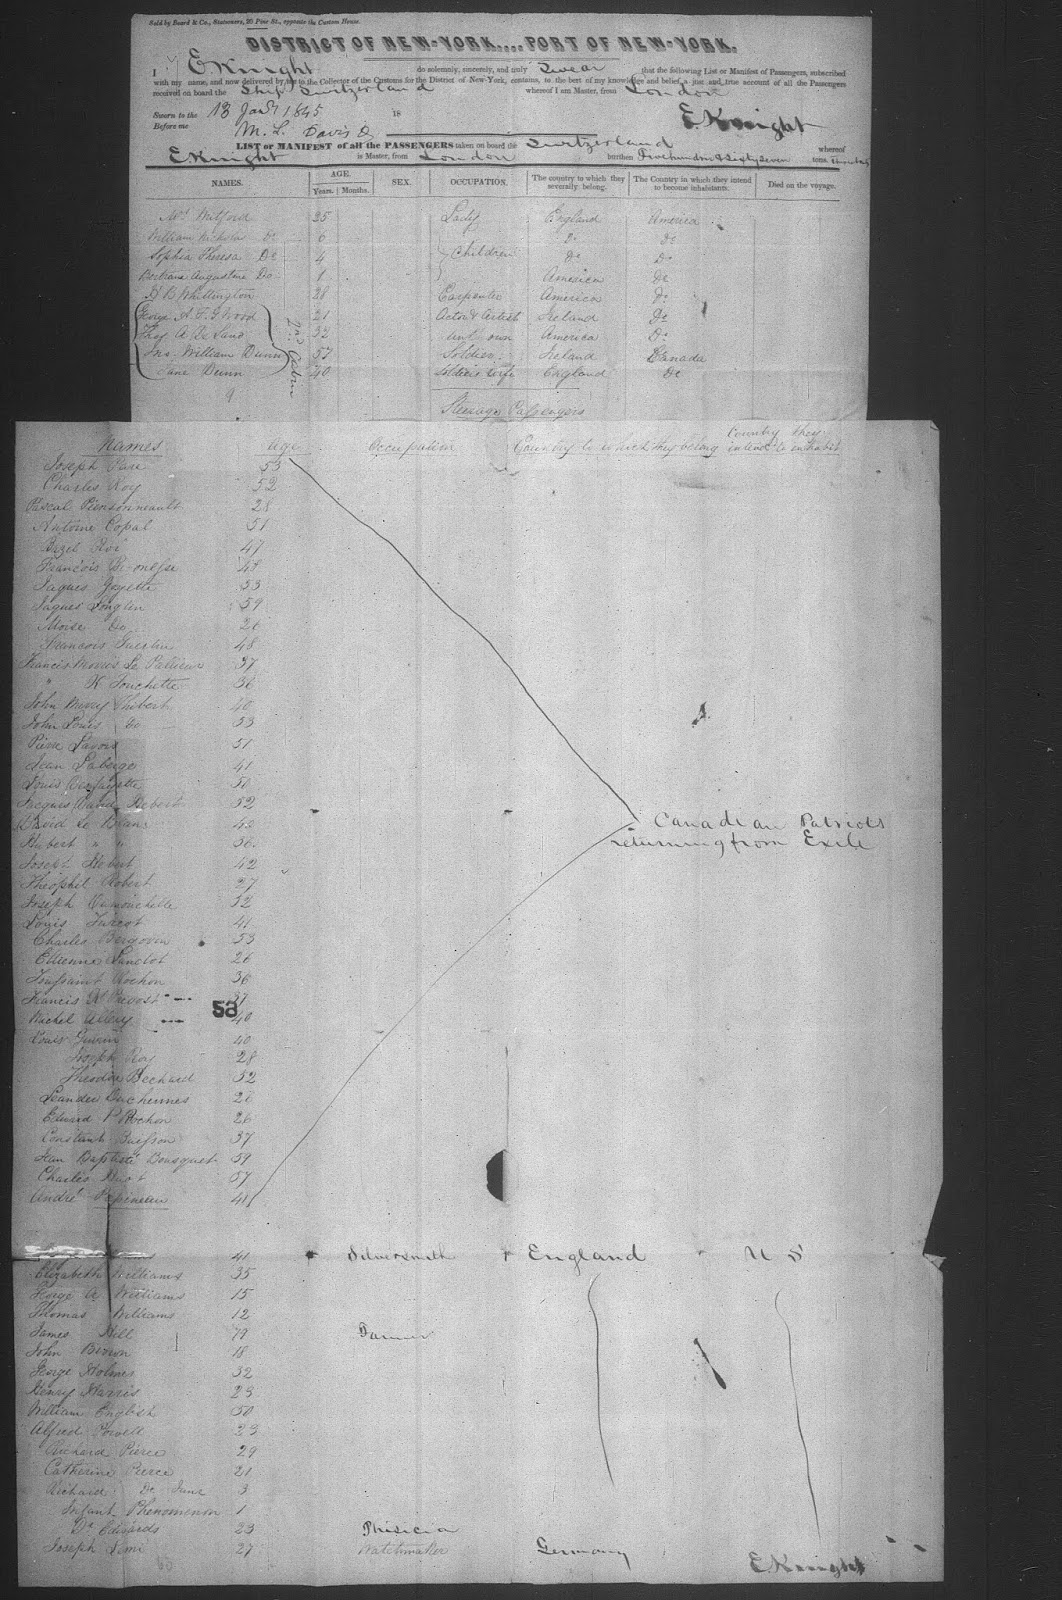 Sold by Beard & Co., Stationers, 20 Pine St., opposite the Custom House.
DISTRICT OF NEW-YORK....PORT OF NEW-YORK.
I E Knight do solemnly, sincerely, and truly Swear that the following List or Manifest of Passengers, subscribed
with my name, and now delivered by me to the Collector of the Customs for the District of New-York, contains, to the best of my knowledge and belief, a just and true account of all the Passengers
received on board the Ship Switzerland whereof I am Master, from London
Sworn to the 18 Jany 1845 18
Before me M. L. Davis E Knight
LIST or MANIFEST of all the PASSENGERS taken on board the Switzerland whereof
E Knight is Master, from London burthen Five hundred & Sixty Seven tons.
NAMES. AGE. Years. Months. SEX. OCCUPATION. The country to which they severally belong. The Country in which they intend to become inhabitants. Died on the voyage.
Mrs Mitford 25 Lady England America
William Nicholas Do 6 Do Do
Sophia Theresa Do 4 Children Do Do
Bertrane Augustine Do 1 America Do
D B Whittington 28 Carpenter America Do
George A. F. G Wood 21 Actor & Artist Ireland Do
Thos A De Sand 32 America Do
Jno. William Dunn 57 Soldier Ireland Canada
Jane Dunn 40 Soldiers wife England Do
2nd Cabin
9
Steerage Passengers
Names Age Occupation Country to which they belong Country they intend to inhabit
Joseph Pare 53
Charles Roy 52
Pascal Piensonneault 28
Antoine Copal 51
47
François 48
Jaques Goyette 53
Jaques Longtin 59
Moise Do 26
Francois Guertin 48
Francis Morris Le Pallieur 37
" H Touchette 36
John Morry Thibert 40
John Louis Do 53
Pierre Lavois 51
Jean Laberge 41
Louis 50
Jacques David Hebert 52
David Le Blanc 42
Hubert " " 36
Joseph Hebert 42
Theophil Robert 27
Joseph Dumouchelle 52
Louis Turcot 41
Charles Bergovin 53
Etienne Langlot 26
Toussaint Rochon 36
Francis X Prevost 37
58
Rachel Allery 40
Louis Guerin 40
Joseph Roy 28
Theodore Bechard 52
Leandre Duchermes 28
Edward P Rochon 26
Constant Buisson 37
Jean Baptiste Bousquet 59
Charles Huot 57
André Papineau 41
Canadian Patriots
returning from Exile
41 Silversmith England U S
Elizabeth Williams 35
George A Williams 15
Thomas Williams 12
James Hill 79 Farmer
John Brown 18
George Holmes 32
Henry Harris 23
William English 50
Alfred Powell 23
Richard Pierce 29
Catherine Pierce 21
Richard Do Junr 3
Infant Phenomenon 1
Dr Edwards 23 Phisicia
Joseph Limi 27 Watchmaker Germany
E Knight